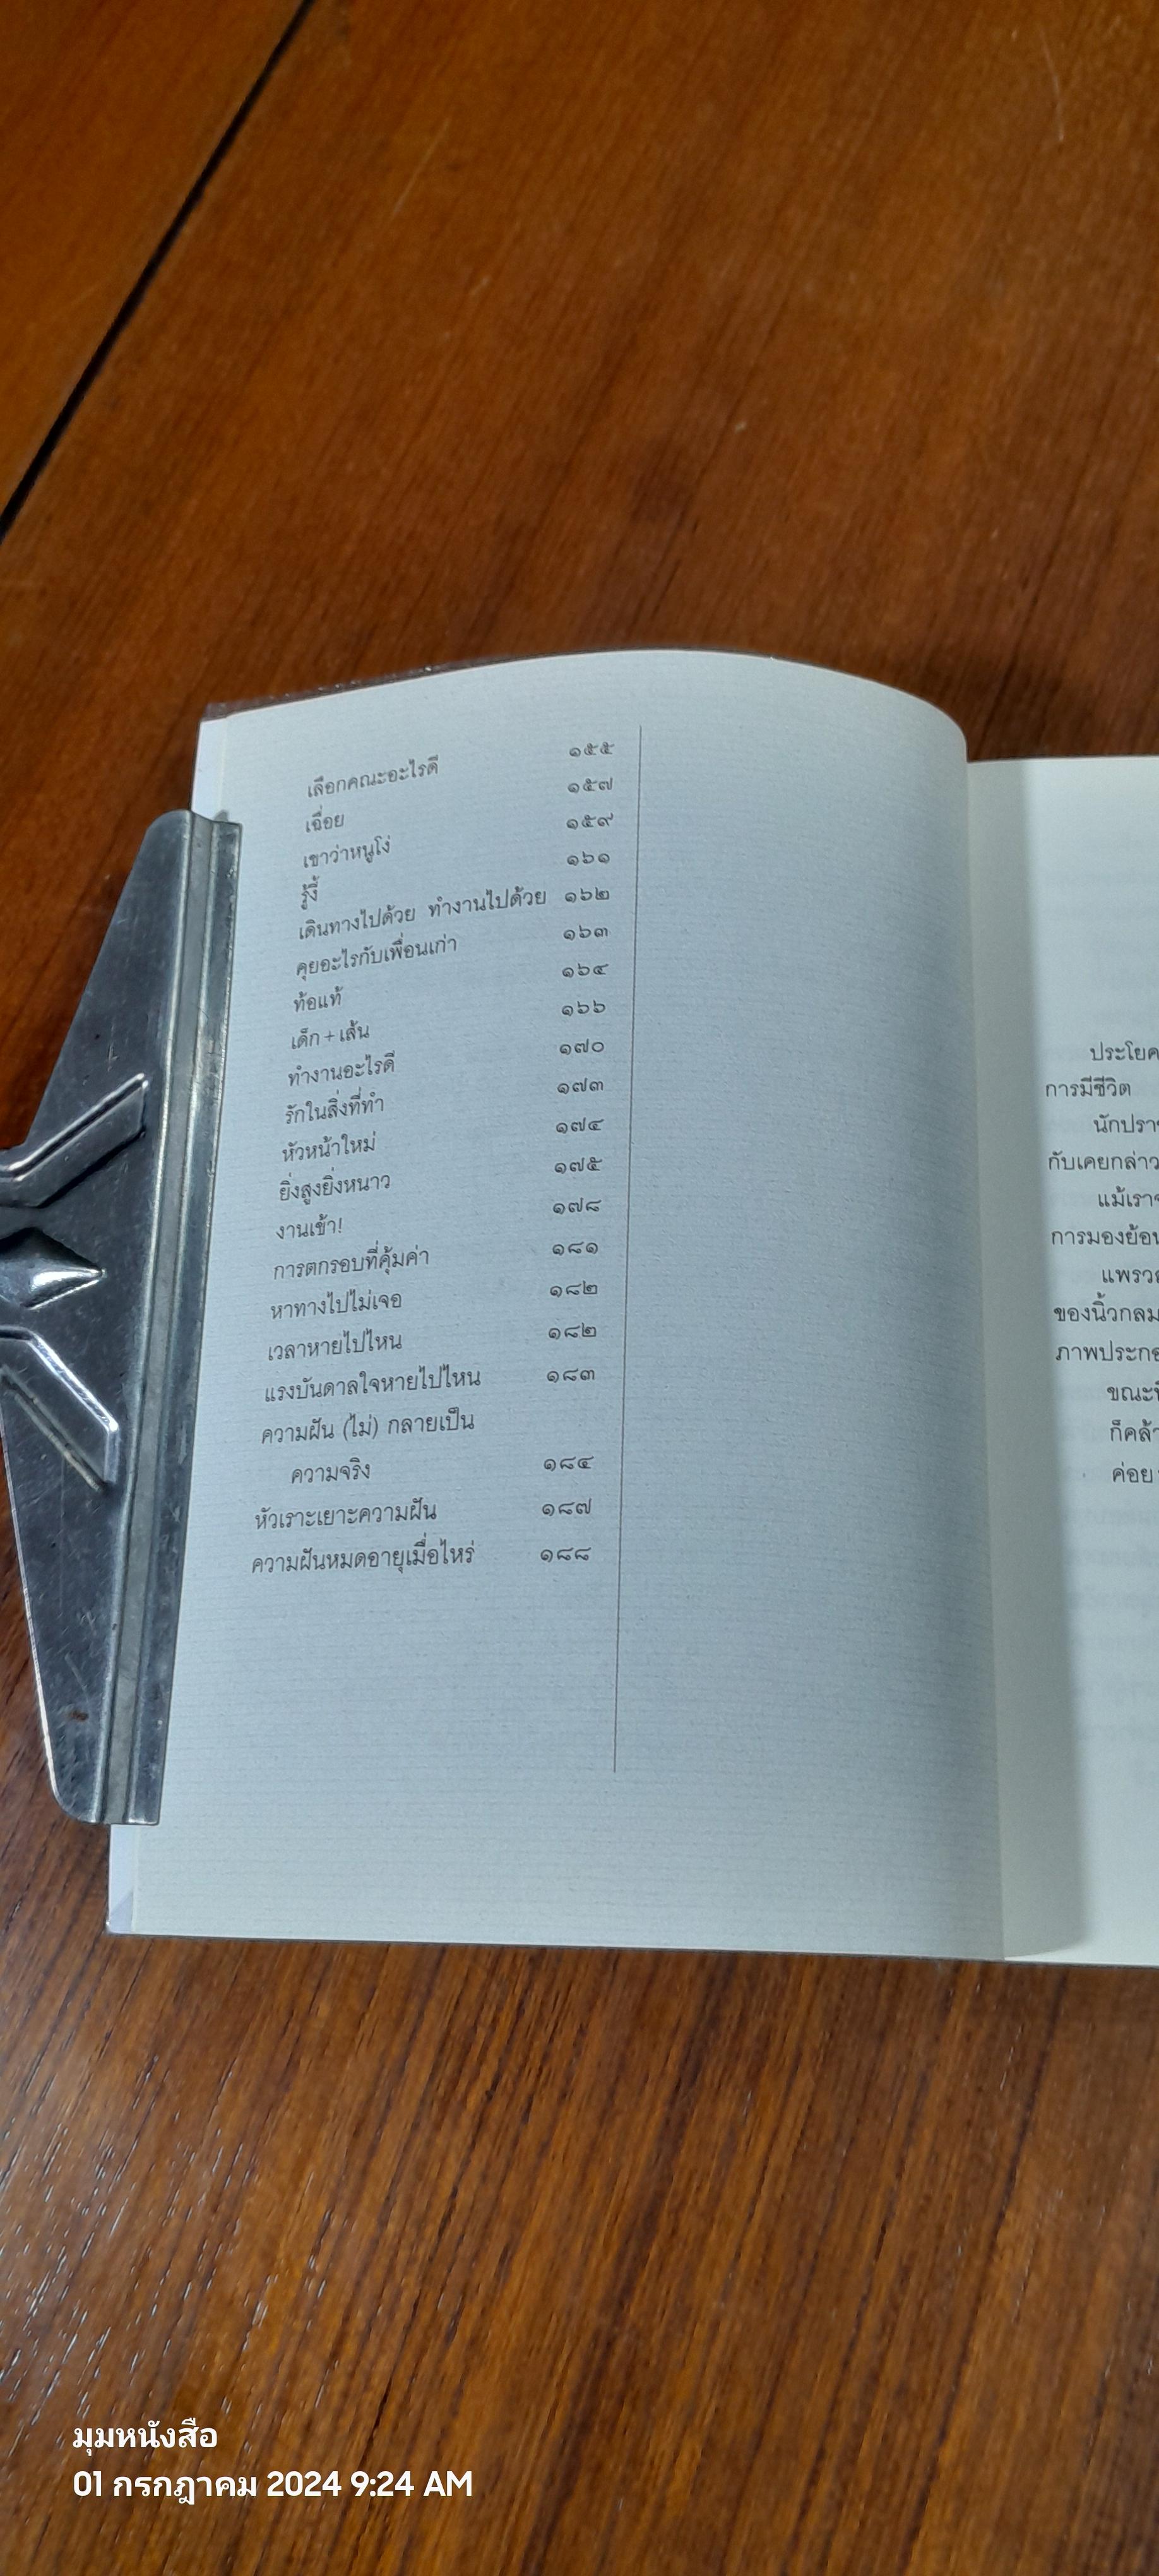 เลือกคณะอะไรดี ๑๕๕
เฉื่อย ๑๕๗
เขาว่าหนูโง่ ๑๕๙
รู้งี้ ๑๖๑
เดินทางไปด้วย ทำงานไปด้วย ๑๖๒
คุยอะไรกับเพื่อนเก่า ๑๖๓
ท้อแท้ ๑๖๔
เด็ก + เส้น ๑๖๖
ทำงานอะไรดี ๑๗๐
รักในสิ่งที่ทำ ๑๗๓
หัวหน้าใหม่ ๑๗๔
ยิ่งสูงยิ่งหนาว ๑๗๕
งานเข้า! ๑๗๘
การตกรอบที่คุ้มค่า ๑๘๑
หาทางไปไม่เจอ ๑๘๒
เวลาหายไปไหน ๑๘๒
แรงบันดาลใจหายไปไหน ๑๘๓
ความฝัน (ไม่) กลายเป็น
ความจริง ๑๘๔
หัวเราะเยาะความฝัน ๑๘๗
ความฝันหมดอายุเมื่อไหร่ ๑๘๘
ประโยค
การมีชีวิต
นักปรา
กับเคยกล่าว
แม้เรา
การมองย้อน
แพรว
ของนิ้วกลม
ภาพประกอ
ขณะ
ก็คล้า
ค่อย
มุมหนังสือ
01 กรกฎาคม 2024 9:24 AM